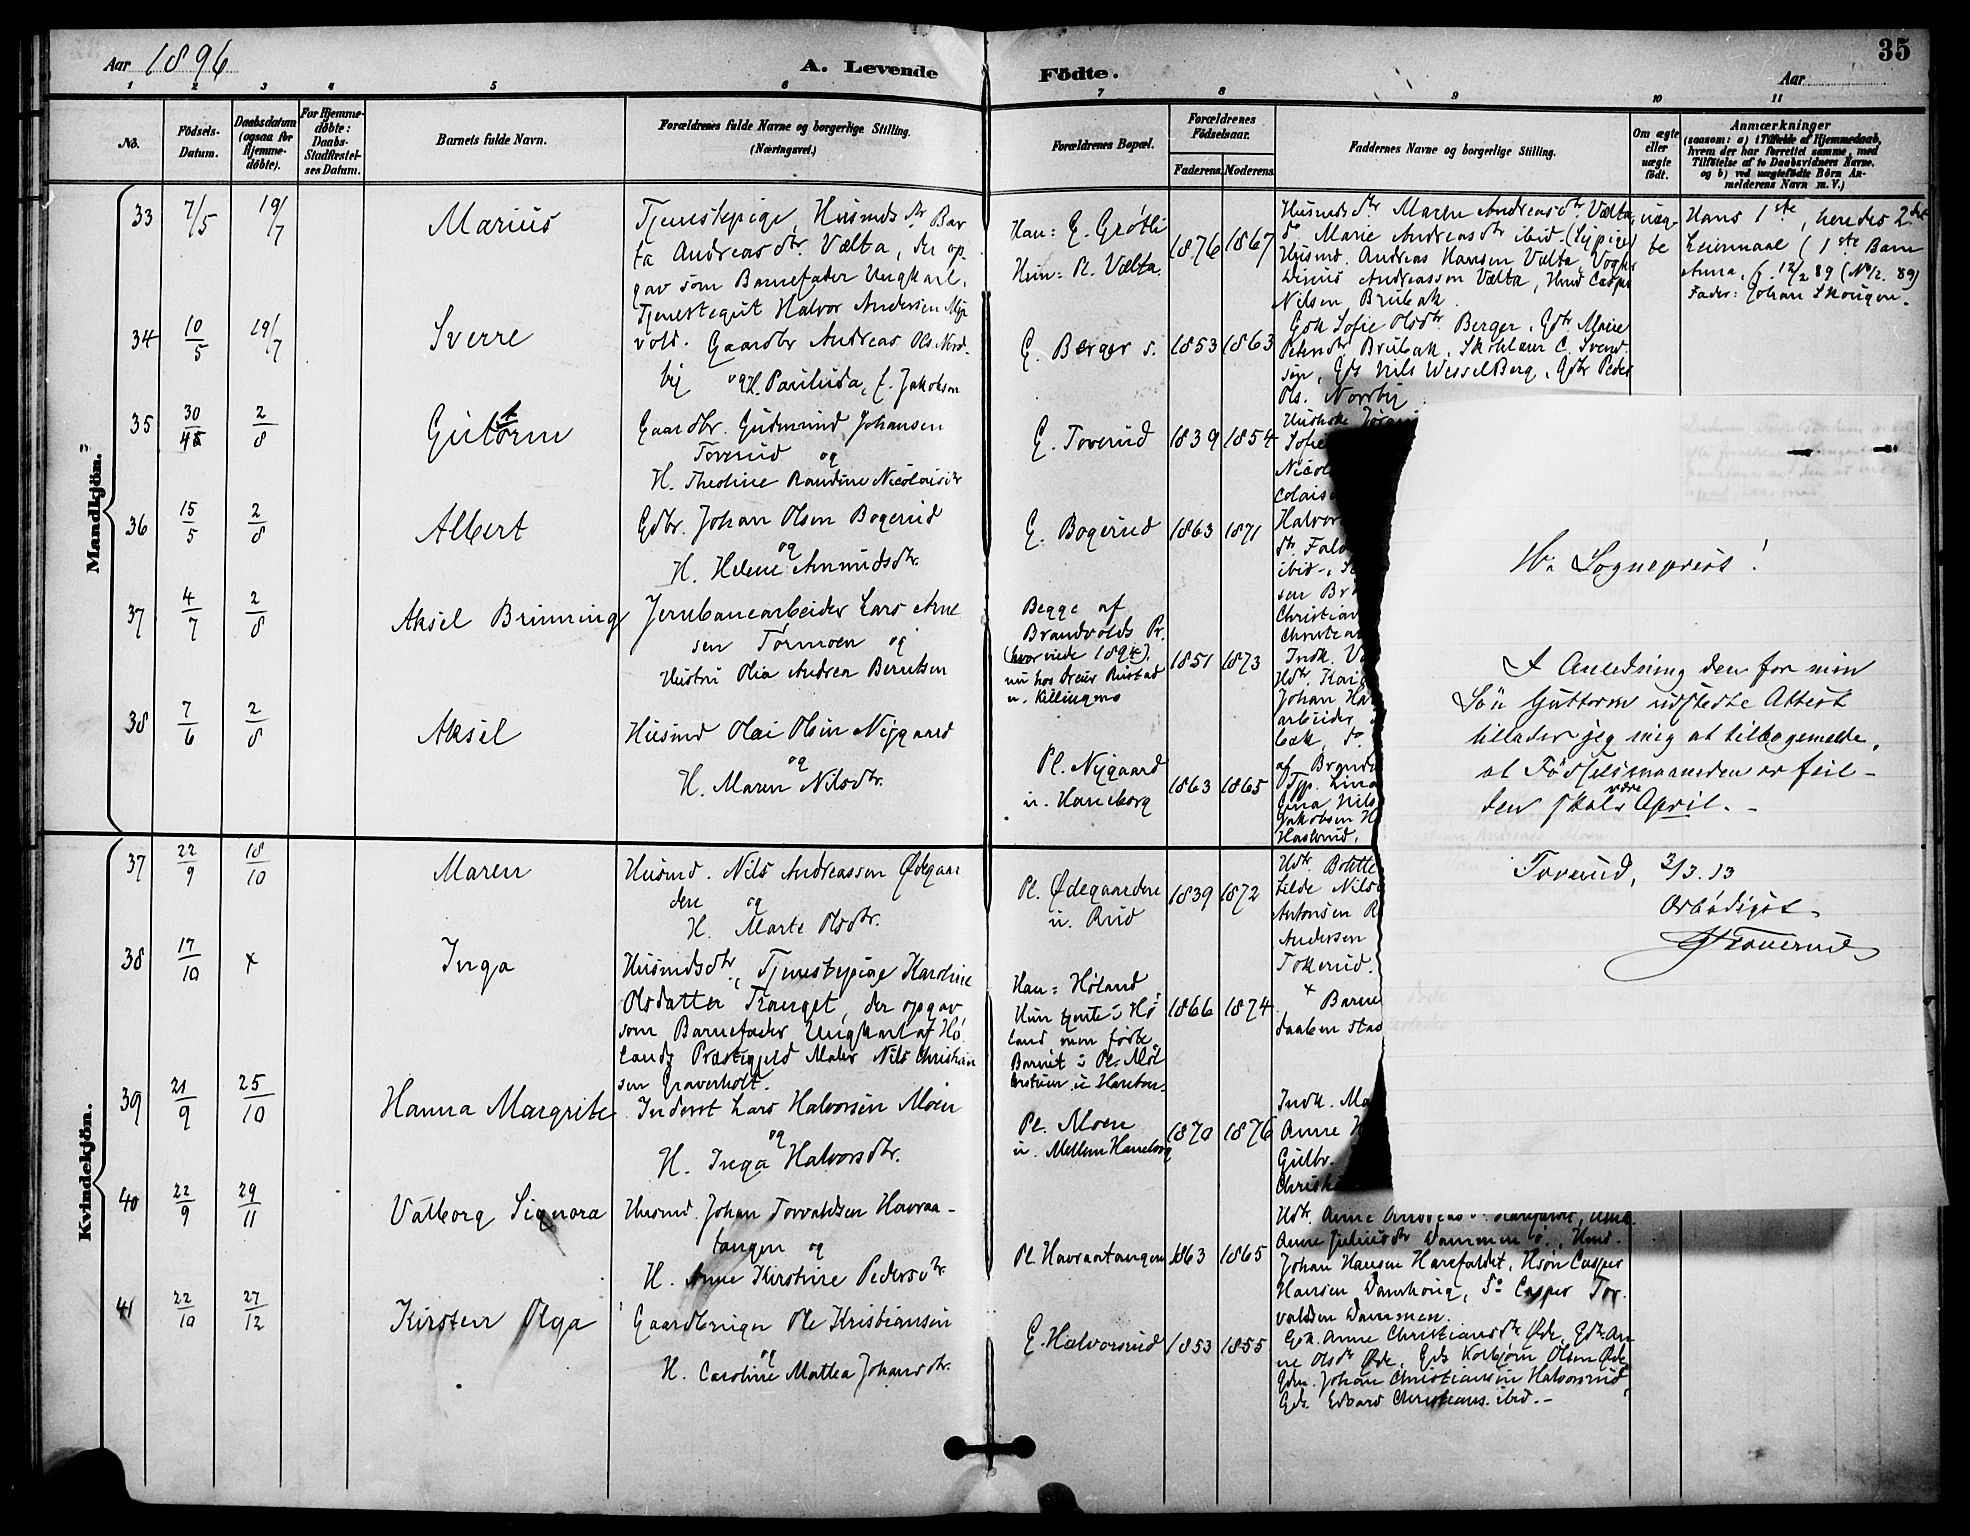 Aar 1896
A. Levende
Födte.
Aar
35
1 2 3 4 5 6 7 8 9 10 11
No.
Födsels-
Datum.
Daabsdatum
(ogsaa for
Hjemme-
döbte).
For Hjemme-
døbte:
Daabs-
Stadfæstel-
ses Datum.
Barnets fulde Navn.
Forældrenes fulde Navne og borgerlige Stilling.
(Næringsvei.)
Forældrenes Bopæl.
Forældrenes
Födselsaar.
Faderens. Moderens.
Faddernes Navne og borgerlige Stilling.
Om ægte
eller
uægte
født.
Anmærkninger
(saasom: a) i Tilfælde af Hjemmedaab,
hvem der har forrettet samme, med
Tilføielse af to Daabsvidners Navne,
og b) ved uægtefödte Börn An-
melderens Navn m. V.)
Mandkjön.
33 7/5 19/7 Marius
Tjenestepige, Husmds dtr Bar
ta Andreasdtr. Vælta, der op-
gav som Barnefader Ungkarl,
Tjenestegut Halvor Andersen Myr
vold.
Han: E. Grøtli
Hun: Pl. Vælta.
1876 1867
Husmdsdtr Maren Andreasdtr. Vælta,
do Marie Andreasdtr ibid.
Husmd. Andreas Hansen Vælta
Andreasson Vælta, Husmd Casper
Nilsen Brubak.
uæg-
te
Hans 1ste, hendes 2det
Leiermaal (1ste Barn
Anna, f. 12/2 89 (No 12. 89)
Fader: Johan Skougen.
34 10/5 19/7 Sverre
Gaardbr Andreas Ols. Nord-
by og H. Paulina, f. Jakobsen
E. Berger s.
1853 1863
Gdk Sofie Olsdtr. Berger, Gdtr Marie
Petersdtr Brubak, Skolelærer C. Svend-
sen, Gds Nils Wessel Berg, Gdbr Peder
Ols. Norrby
35 30/4 2/8 Gutorm
Gaardbr. Gudmund Johansen
Toverud og
H. Theoline Randine Nicolaisdtr
E. Toverud
1839 1854
Sofie
Nicol
colais
36 15/5 2/8 Albert
Gdbr. Johan Olsen Bogerud
og
H. Helene Amundsdtr.
E. Bogerud
1863 1871
Halvor
dtr. Fal
ibid.
sen Br
Christia
37 4/7 2/8 Aksel Brinning
Jernbanearbeider Lars Arne
sen Tormoen og
Hustru Olia Andrea Berntsen
Begge af
Brandvolds Pr.
(hvor viede 1894).
nu hos Dreier Rustad
u. Killingmo
1851 1873
Christia
Indk. V
Hdtr. Kari
Johan Ha
arbeider
bæk, do
af Brandv
38 7/6 2/8 Aksel
Husmd Olai Olsen Nygaard
og
H. Maren Nilsdtr.
Pl. Nygaard
u. Haneborg
1863 1865
Tjp. Lina
Gina Nils
Jakobsen H
Haslerud.
Kvindekjön.
37 22/9 18/10 Maren
Husmd. Nils Andreassen Ødegaar
den og
H. Marte Olsdtr.
Pl. Ødegaarden
u. Rud
1839 1872
Hdtr. Bolette
tilde Nils
Antonsen R
Andersen
Tokerud.
38 17/10 x Inga
Husmdsdtr, Tjenestepige Karoline
Olsdatter Tranget, der opgav
som Barnefader Ungkarl af Hö
lands Præstegjeld Maler Nils Christian
sen Graverholt.
Han: Høland
Hun tjente i Hö
land men födte
Barnet i Pl. Möl
lerstuen u Hanebor
1866 1874
x Barne
daaben stad
39 21/9 25/10 Hanna Margrite
Inderst Lars Halvorsen Moen
og
H. Inga Halvorsdtr.
Pl. Moen
u. Mellem Haneborg
1870 1876
Indk. Ma
Anne H
Gulbr.
Christi
40 22/9 29/11 Valborg Signora
Husmd. Johan Torvaldsen Havraa-
tangen og
H. Anne Kirstine Pedersdtr.
Pl. Havraatangen
1863 1865
Hdtr. Anne Andreasdtr. Harefaldet,
Anne Juliusdtr Dammen Husmd.
Johan Hansen Harefaldet, Hsøn Casper
Hansen Damhoug, do Casper Tor-
valdsen Dammen.
41 22/10 27/12 Kirsten Olga
Gaardbruger Ole Kristiansen
og
H. Caroline Mathea Johansdtr.
E. Halvorsrud
1853 1855
Gdk. Anne Christiansdtr Øde, Gdtr. An-
ne Olsdtr Øde, Gds Kolbjørn Olsen Øde,
Gdm. Johan Christiansen Halvorsrud,
Gds. Edvard Christians. ibid.-
Hr. Sogneprest!
I Anledning den for min
Sön Guttorm udstedte Attest
tillader jeg mig at tilbagemelde,
at Födselsmaaneden er feil -
den skal være April. -
Toverud, 3/3.13
Ærbödigst
G Toverud